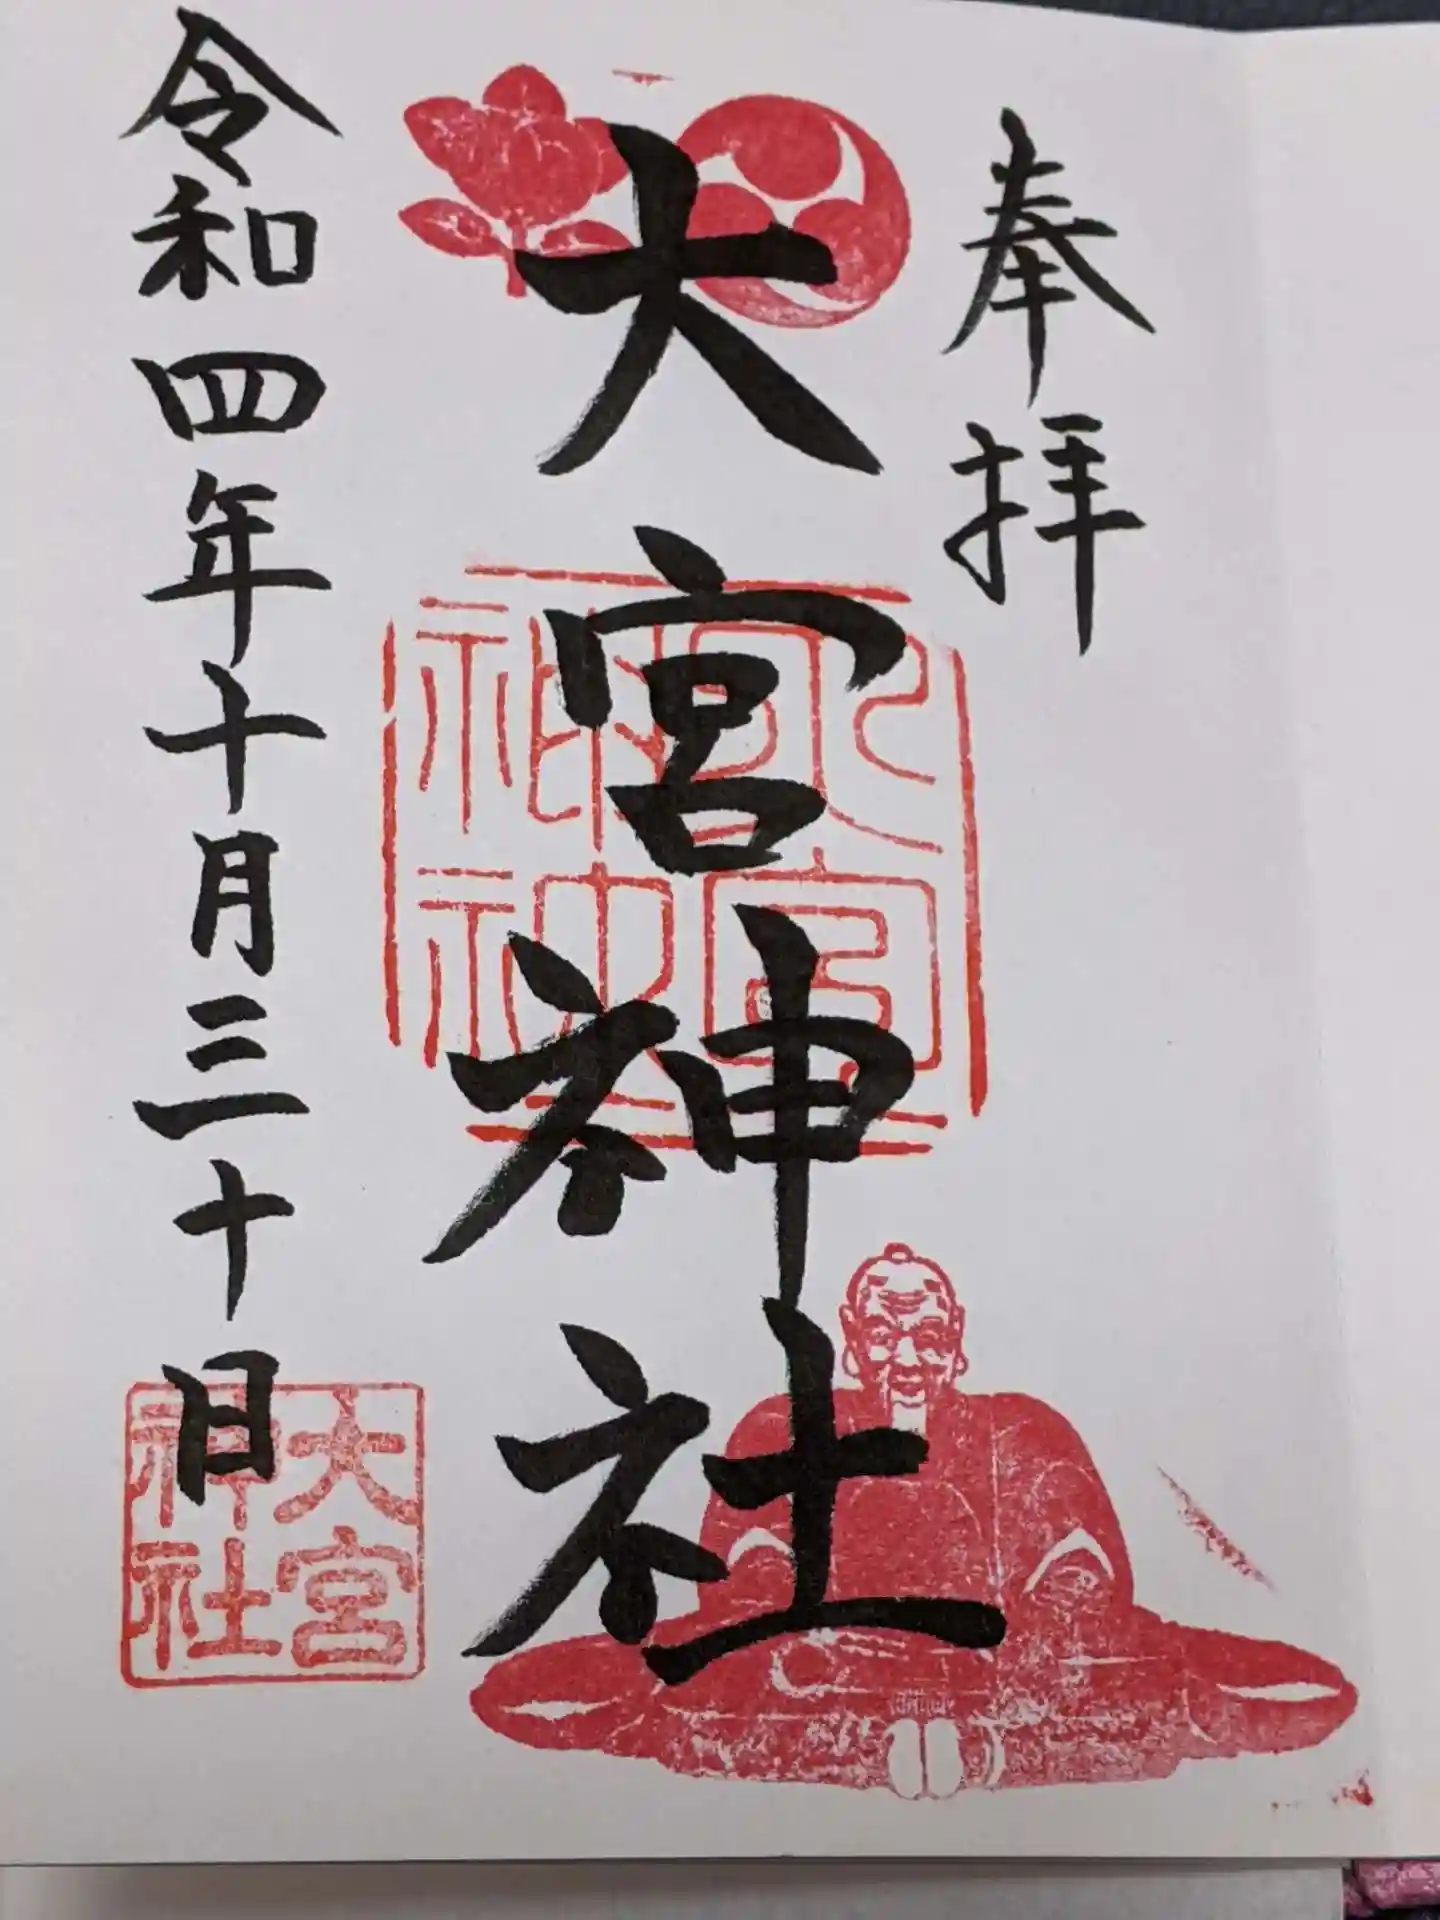 奉拝
大宮神社
大宮神社
令和四年十月三十日
大宮神社